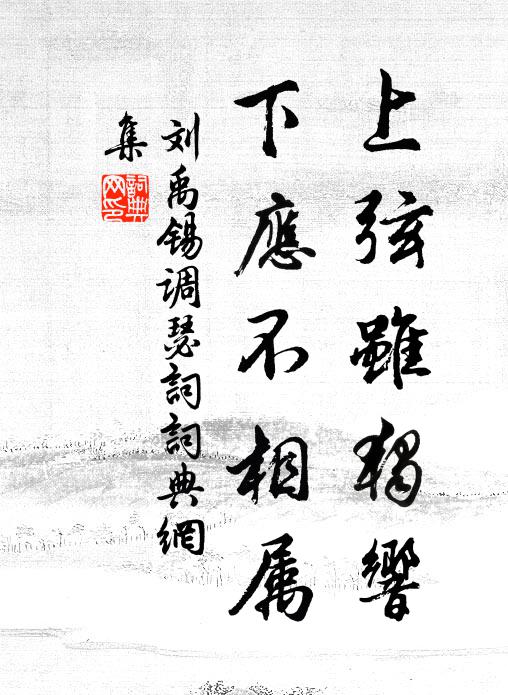 上弦雖獨響
下應不相属
刘禹锡调瑟詞詞典網
集
詞典網印